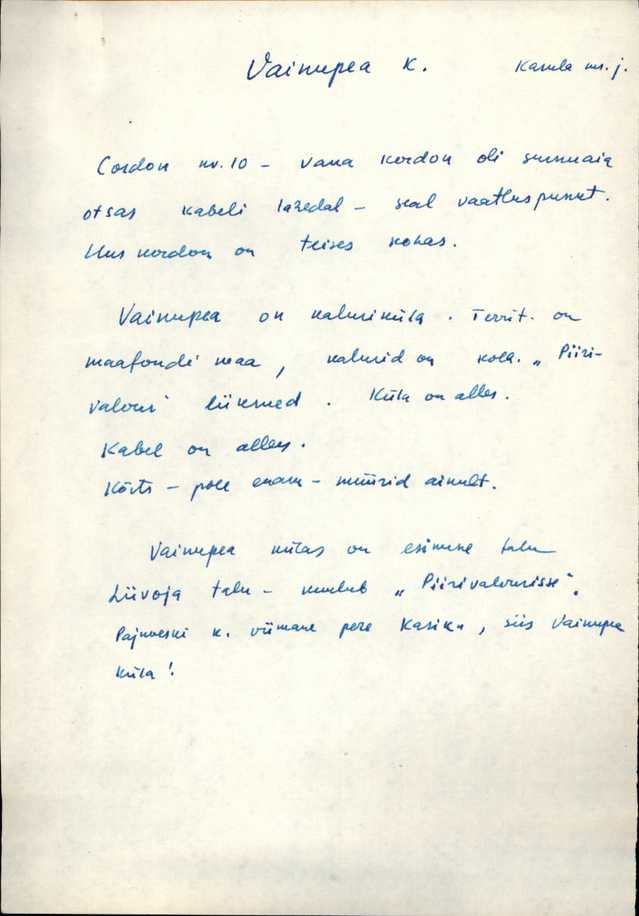 Vainupea k. Karula mr. j.
Cordon nr. 10 – vana kordon oli surnuaia
otsas kabeli lähedal – seal vaatluspunkt.
Uus kordon on teises kohas.
Vainupea on kaluriküla. Territ. on
maafondi maa, kalurid on kolh. „Piiri-
valvuri" liikmed. Küla on alles.
Kabel on alles.
Kõrts – pole enam – müürid ainult.
Vainupea külas on esimene talu
Liivoja talu – kuulub „Piirivalvurisse".
Pajuveski k. viimane pere Kasiku, siis Vainupea
küla!